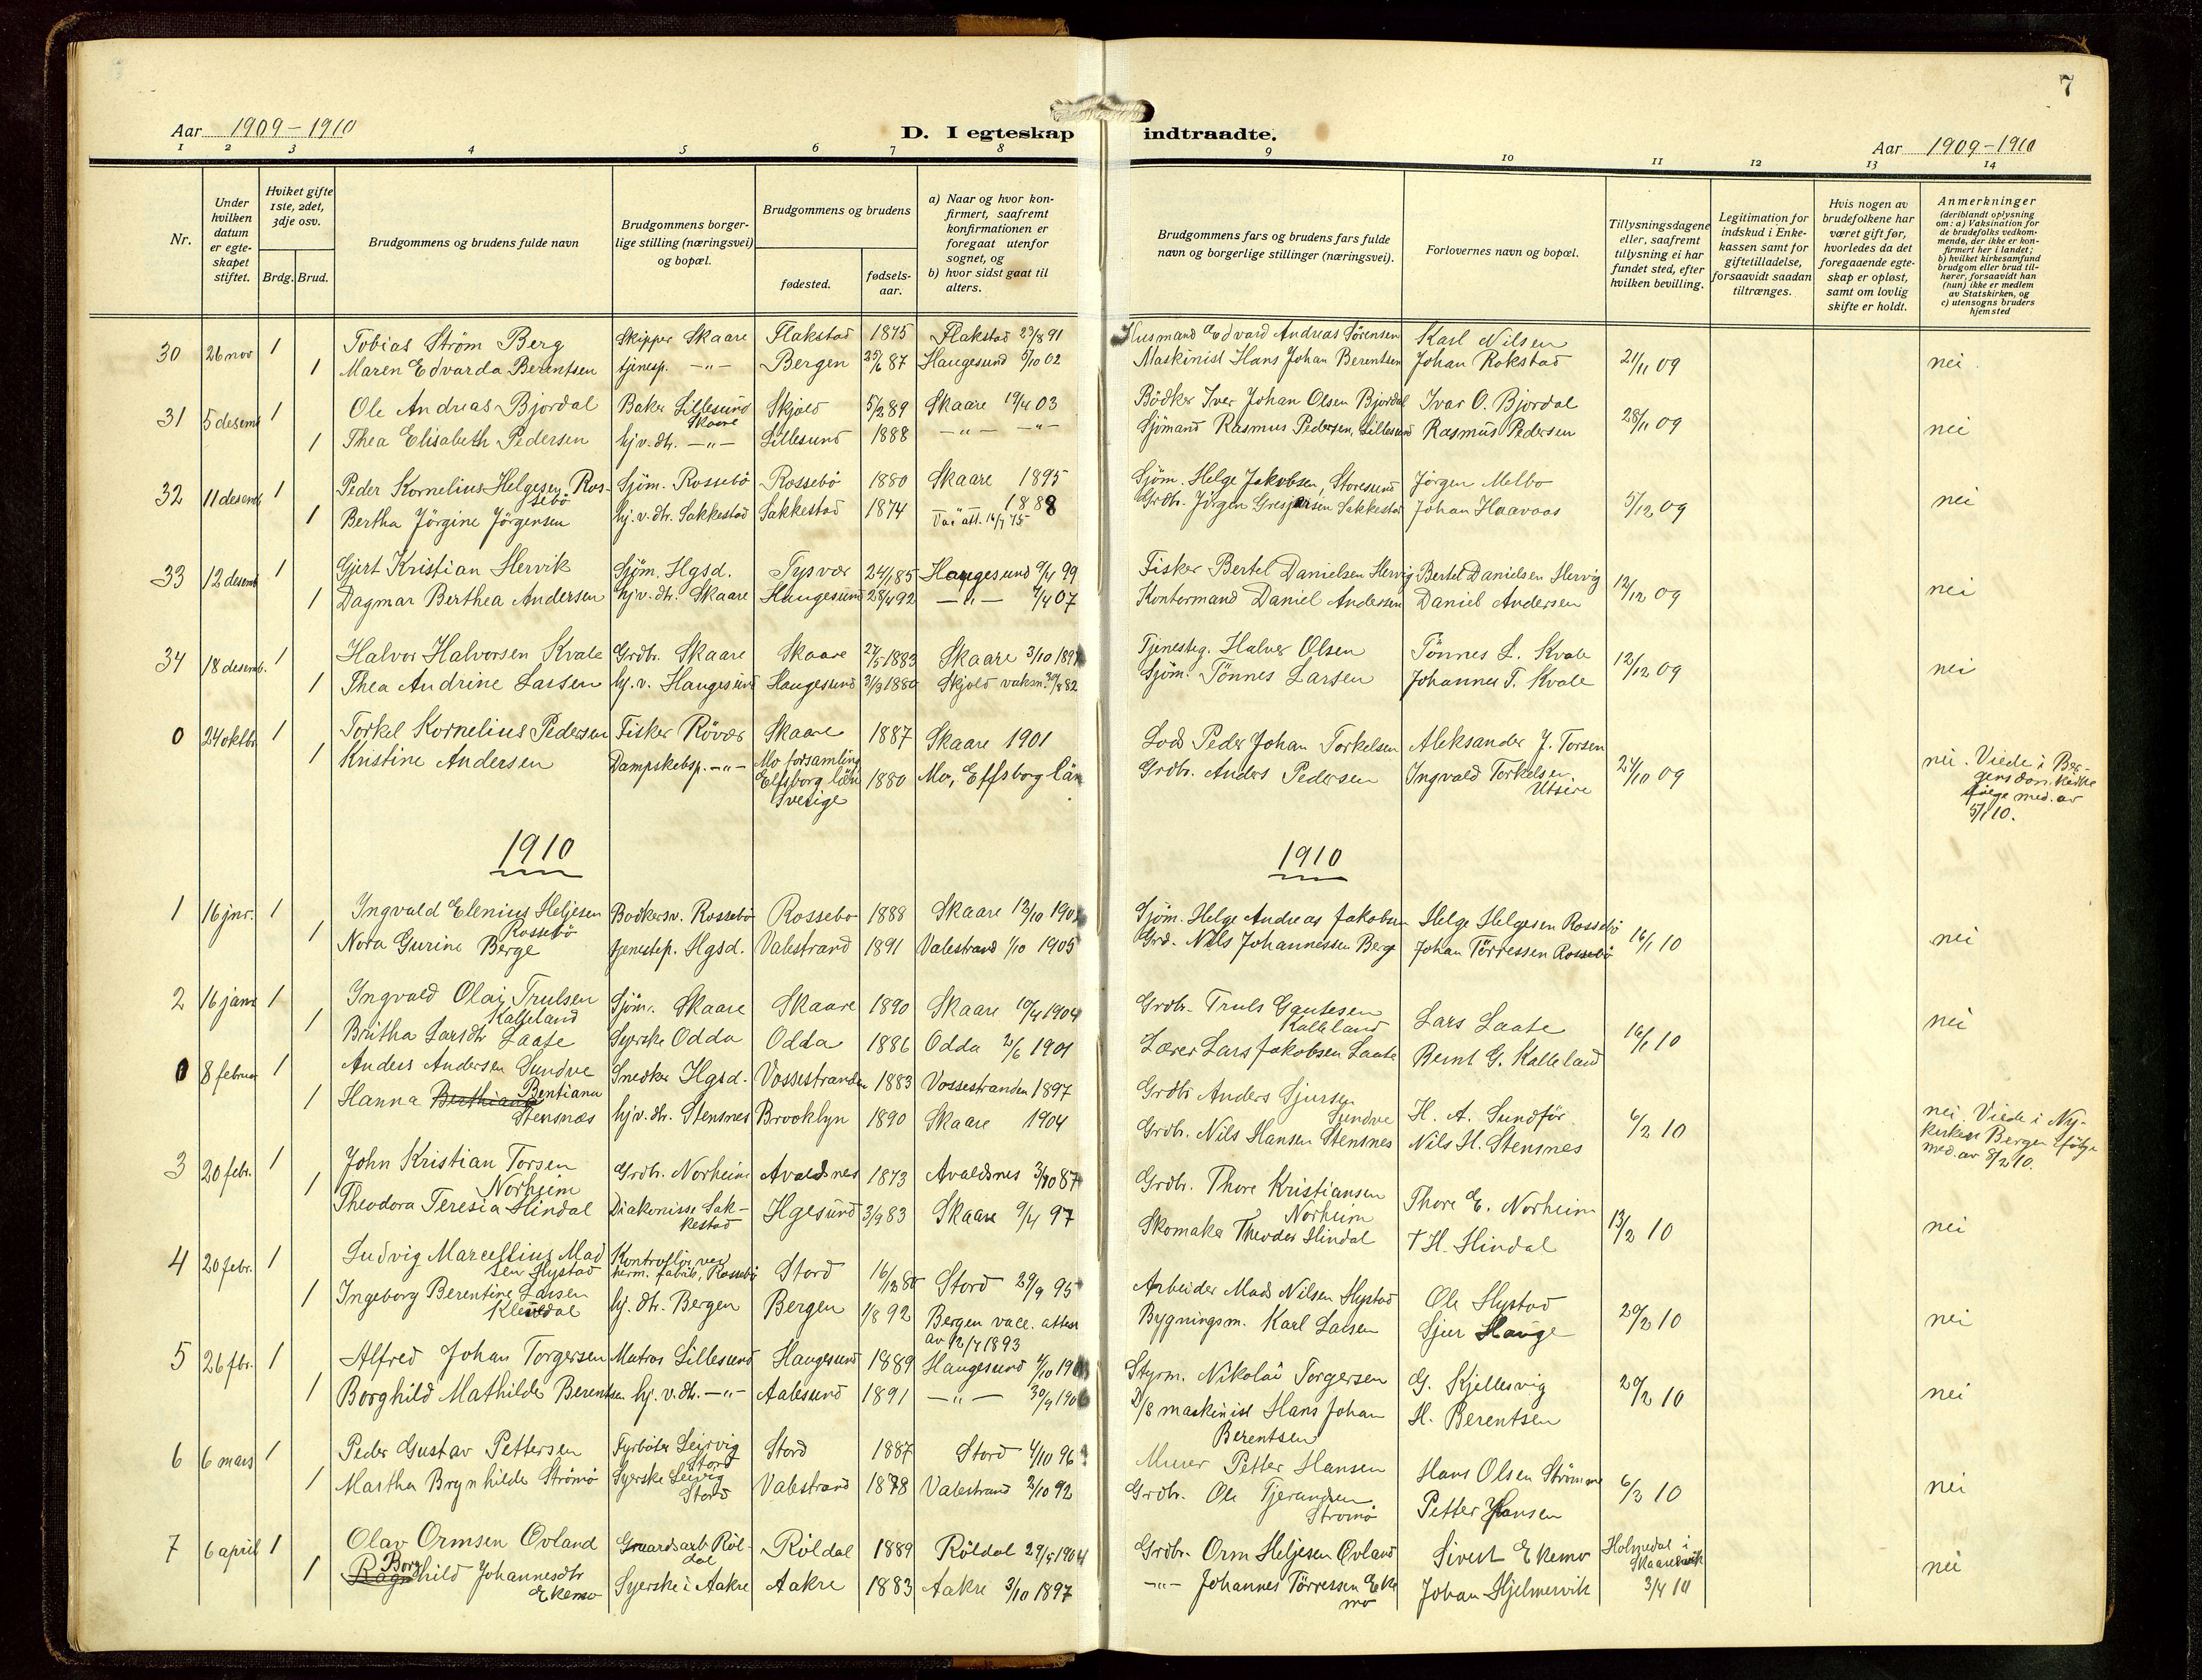 7
Aar 1909-1910
D. I egteskap indtraadte.
Aar 1909-1910
1 2 3 4 5 6 7 8 9 10 11 12 13 14
Nr.
Under hvilken datum er egteskapet stiftet.
Hviket gifte 1ste, 2det, 3dje osv.
Brdg. Brud.
Brudgommens og brudens fulde navn
Brudgommens borgerlige stilling (næringsvei) og bopæl.
Brudgommens og brudens
fødested.
fødselsaar.
a) Naar og hvor konfirmert, saafremt konfirmationen er foregaat utenfor sognet, og
b) hvor sidst gaat til alters.
Brudgommens fars og brudens fars fulde navn og borgerlige stillinger (næringsvei).
Forlovernes navn og bopæl.
Tillysningsdagene eller, saafremt tillysning ei har fundet sted, efter hvilken bevilling.
Legitimation for indskud i Enkekassen samt for giftetilladelse, forsaavidt saadan tiltrænges.
Hvis nogen av brudefolkene har været gift før, hvorledes da det foregaaende egteskap er opløst, samt om lovlig skifte er holdt.
Anmerkninger
(deriblandt oplysning om: a) Vaksination for de brudefolks vedkommende, der ikke er konfirmert her i landet;
b) hvilket kirkesamfund brudgom eller brud tilhører, forsaavidt han (hun) ikke er medlem av Statskirken, og
c) utensogns bruders hjemsted
30 26 nov 1 Tobias Strøm Berg Skipper Skaare Flakstad 1875 Flakstad 23/8 91 Husmand Edvard Andreas Sörensen Karl Nilsen 21/11 09 nei
1 Maren Edvarda Berentsen tjenesp. -"- Bergen 25/6 87 Haugesund 5/10 02 Maskinist Hans Johan Berentsen Johan Rokstad
31 5 desemb 1 Ole Andreas Bjordal Baker Lillesund Skaare Skjold 5/2 89 Skaare 19/4 03 Bödker Iver Johan Olsen Bjordal Ivar O. Bjordal 28/11 09 nei
1 Thea Elisabeth Pedersen hjv. dtr. -"- Lillesund 1888 -"- -"- Sjömand Rasmus Pedersen, Lillesund Rasmus Pedersen
32 11 desemb 1 Peder Kornelius Helgesen Rossebö Sjöm. Rossebö Rossebö 1880 Skaare 1895 Sjöm. Helge Jakobsen, Storesund Jörgen Melbo 5/12 09 nei
1 Bertha Jörgine Jörgensen hj. v. dtr. Sakkestad Sakkestad 1874 -"- 1888 Vac. att. 16/7 75 Grdbr. Jörgen Sakkestad Johan Haavaas
33 12 desemb 1 Gjert Kristian Hervik Sjöm. Hgsd. Tysvær 24/1 85 Haugesund 9/4 99 Fisker Bertel Danielsen Hervig Bertel Danielsen Hervig 12/12 09 nei
1 Dagmar Berthea Andersen hjv. dtr. Skaare Haugesund 28/4 92 -"- 7/4 07 Kontormand Daniel Andersen Daniel Andersen
34 18 desemb. 1 Halvor Halvorsen Kvale Grdbr. Skaare Skaare 27/5 1883 Skaare 3/10 1897 Tjenesteg. Halvor Olsen Tönnes L. Kvale 12/12 09 nei
1 Thea Andrine Larsen hj. v. Haugesund Haugesund 31/3 1880 Skjold vaksn. 30/8 82 Sjöm. Tönnes Larsen Johannes T. Kvale
0 24 oktbr 1 Torkel Kornelius Pedersen Fisker Rövær Skaare 1887 Skaare 1901 Lods Peder Johan Torkelsen Aleksander J. Torsen 24/10 09 nei. Viede i Bergens dom. kirke ifölge med. av 5/1 10.
1 Kristine Andersen Dampskebsp. -"- Mo forsamling Elfsborg län Sverige 1880 Mo, Elfsborg län Grdbr. Anders Pedersen Ingvald Torkelsen. Utsire
1910 1910
1 16 jnr. 1 Ingvald Elenius Heljesen Rossebö Bödkersv. Rossebö Rossebö 1888 Skaare 12/10 190 Sjöm. Helge Andreas Jakobsen Helge Helgesen Rossebö 16/1 10 nei
1 Nora Gurine Berge tjenestep. Hgsd. Valestrand 1891 Valestrand 1/10 1905 Grd. Nils Johannessen Berge Johan Törressen Rossebö
2 16 janr 1 Ingvald Olai Trulsen Kalleland Sjöm. Skaare Skaare 1890 Skaare 10/4 1904 Grdbr. Truls Gautesen Kalleland Lars Laate 16/1 10 nei
1 Britha Larsdtr Laate Syerske Odda Odda 1886 Odda 2/6 1901 Lærer Lars Jakobsen Laate Bernt G. Kalleland
0 8 februar 1 Anders Andersen Sundve Snedker Hgsd. Vossestranden 1883 Vossestranden 1897 Grdbr Anders Sjursen Sundve H. A. Sundför 6/2 10 nei Viede i Nykirken Bergen ifölge med. av 8/2 10.
1 Hanna Berthiana Bentiana Stensnæs hjv. dtr. Stensnes Brooklyn 1890 Skaare 1904 Grdbr. Nils Hansen Stensnes Nils H. Stensnes
3 20 febr. 1 John Kristian Torsen Norheim Grdbr. Norheim Avaldsnes 1873 Avaldsnes 3/10 87 Grdbr. Thore Kristiansen Norheim Thore E. Norheim 13/2 10 nei
1 Theodora Teresia Hindal Diakonisse Sakkestad Hgesund 3/9 83 Skaare 9/4 97 Skomaker Theodor Hindal T H. Hindal
4 20 febr. 1 Ludvig Marcellius Madsen Hystad Kontrollör ved herm. fabrik, Rossebö Stord 16/12 80 Stord 29/9 95 Arbeider Mads Nilsen Hystad Ole Hystad 20/2 10 nei
1 Ingeborg Berentine Larsen Klevdal hj. dtr. Bergen Bergen 1/8 92 Bergen vacc. attest av 12/7 1893 Bygningsm. Karl Larsen Sjur Hauge
5 26 fbr. 1 Alfred Johan Torgersen Matros Lillesund Haugesund 1889 Haugesund 4/10 190 Styrm. Nikolai Torgersen G. Kjellesvig 20/2 10 nei
1 Borghild Mathilde Berentsen hj. v. dtr. -"- Aalesund 1891 -"- 30/9 1906 D/S maskinist Hans Johan Berentsen H. Berentsen
6 6 mars 1 Peder Gustav Pettersen Fyrböter Leirvig Stord Stord 1887 Stord 4/10 96 Murer Petter Hansen Hans Olsen Strömme 6/3 10 nei
1 Martha Brynhilde Strömö Syerske Leirvig Stord Valestrand 1878 Valestrand 2/10 92 Grdbr. Ole Tjerandsen Strömö Petter Hansen
7 6 april 1 Olav Ormsen Övland Gaardsarb. Röldal Röldal 1889 Röldal 29/5 1904 Grdbr. Orm Heljesen Övland Sivert Ekemo Holmedal i Skaanevik 3/4 10 nei
1 Ragnhild Borghild Johannesdtr Ekemo Syerske i Aakre Aakre 1883 Aakre 3/10 1897 -"- Johannes Törressen Ekemo Johan Hjelmervik